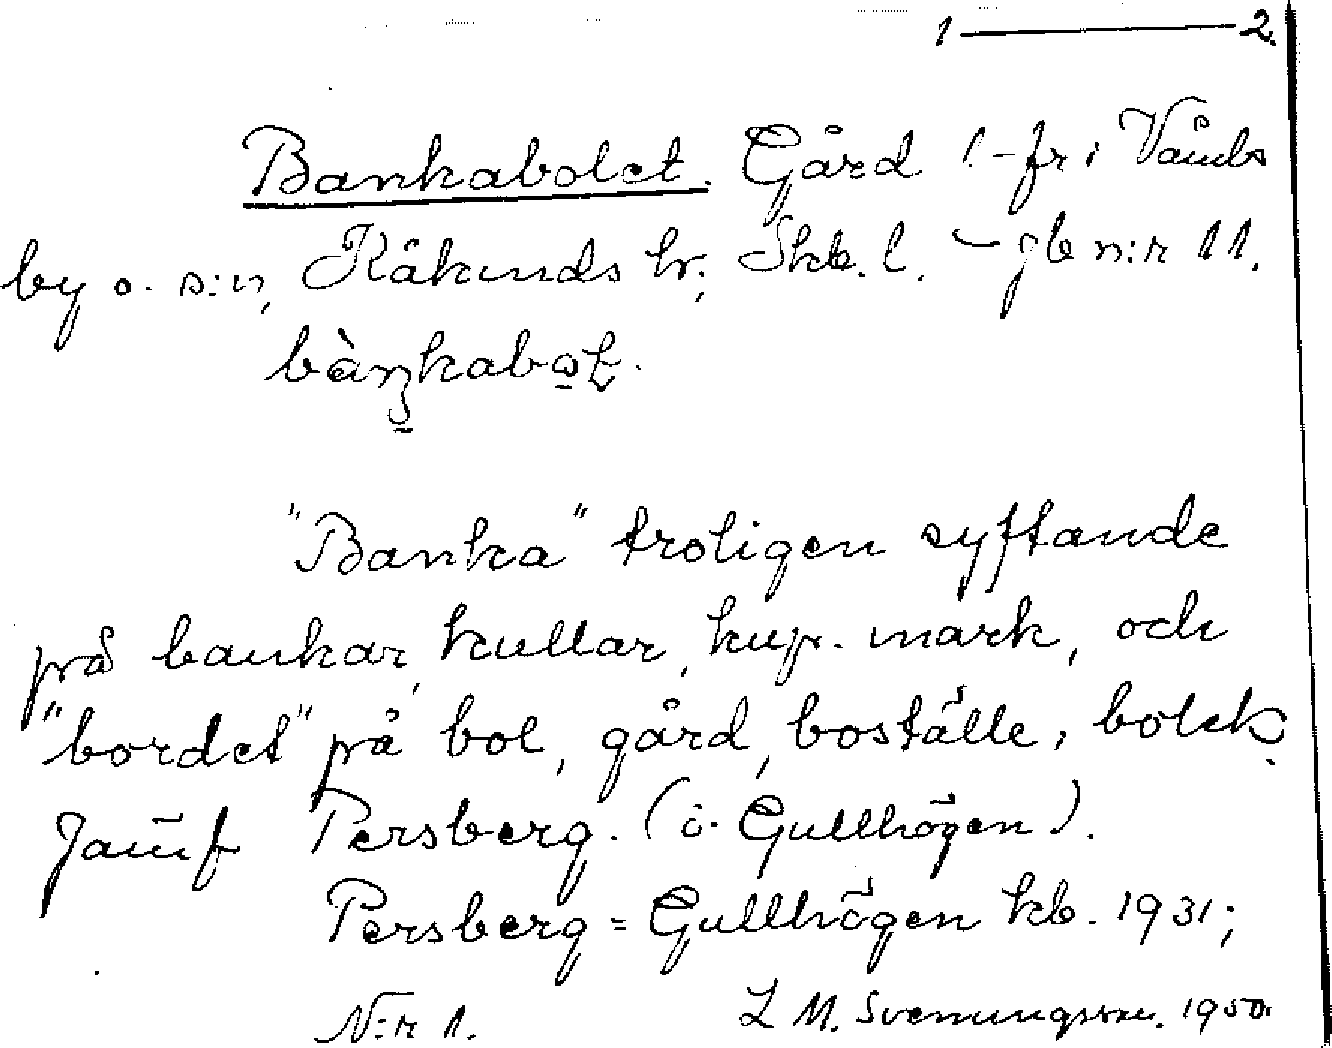 1 — 2.
Bankabolet. Gård 1.-fr i Våmbs
by o. s:n, Kåkinds hr, Skb. l. – gb n:r 11.
bàŋkabo̠ḷ.
"Banka" troligen syftande
på bankar, kullar, kup. mark, och
"bordet" på bol, gård, boställe,
Jämf Persberg. (ö. Gullhögen).
Persberg = Gullhögen kb. 1931;
N:r 1. L M. Svenungsson. 1950.